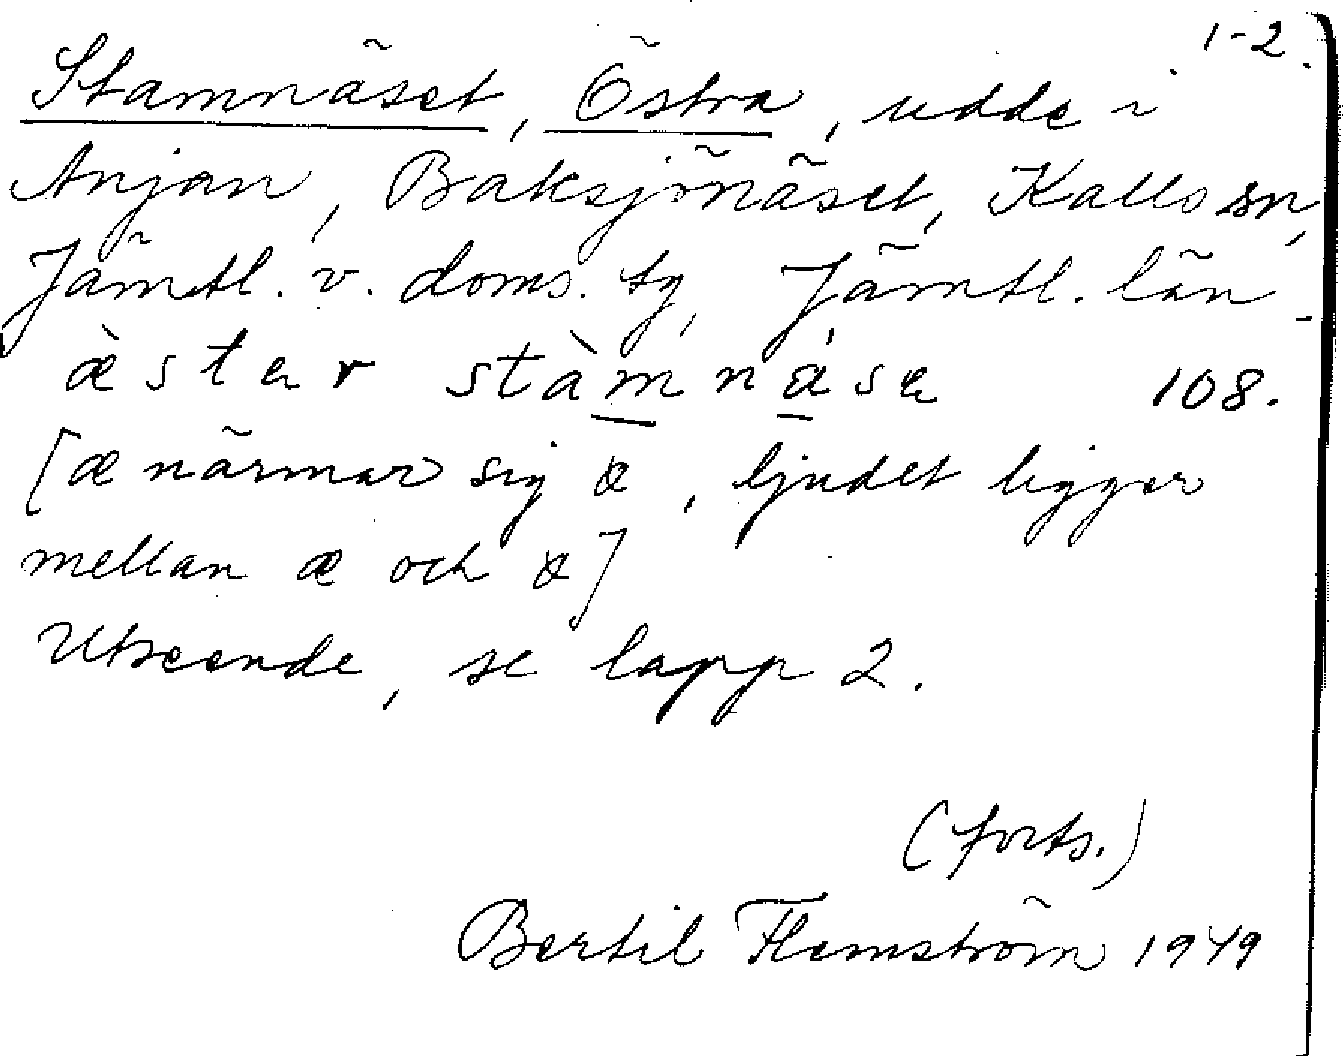 1-2.
Stamnäset, Östra, udde i
Anjan, Baksjönäset, Kalls sn,
Jämtl. v. doms. tg, Jämtl. län.
æ̀ster stàmnása 108.
[æ närmar sig , ljudet ligger
mellan æ och ]
Utseende, se lapp 2.
(forts.)
Bertil Flemström 1949